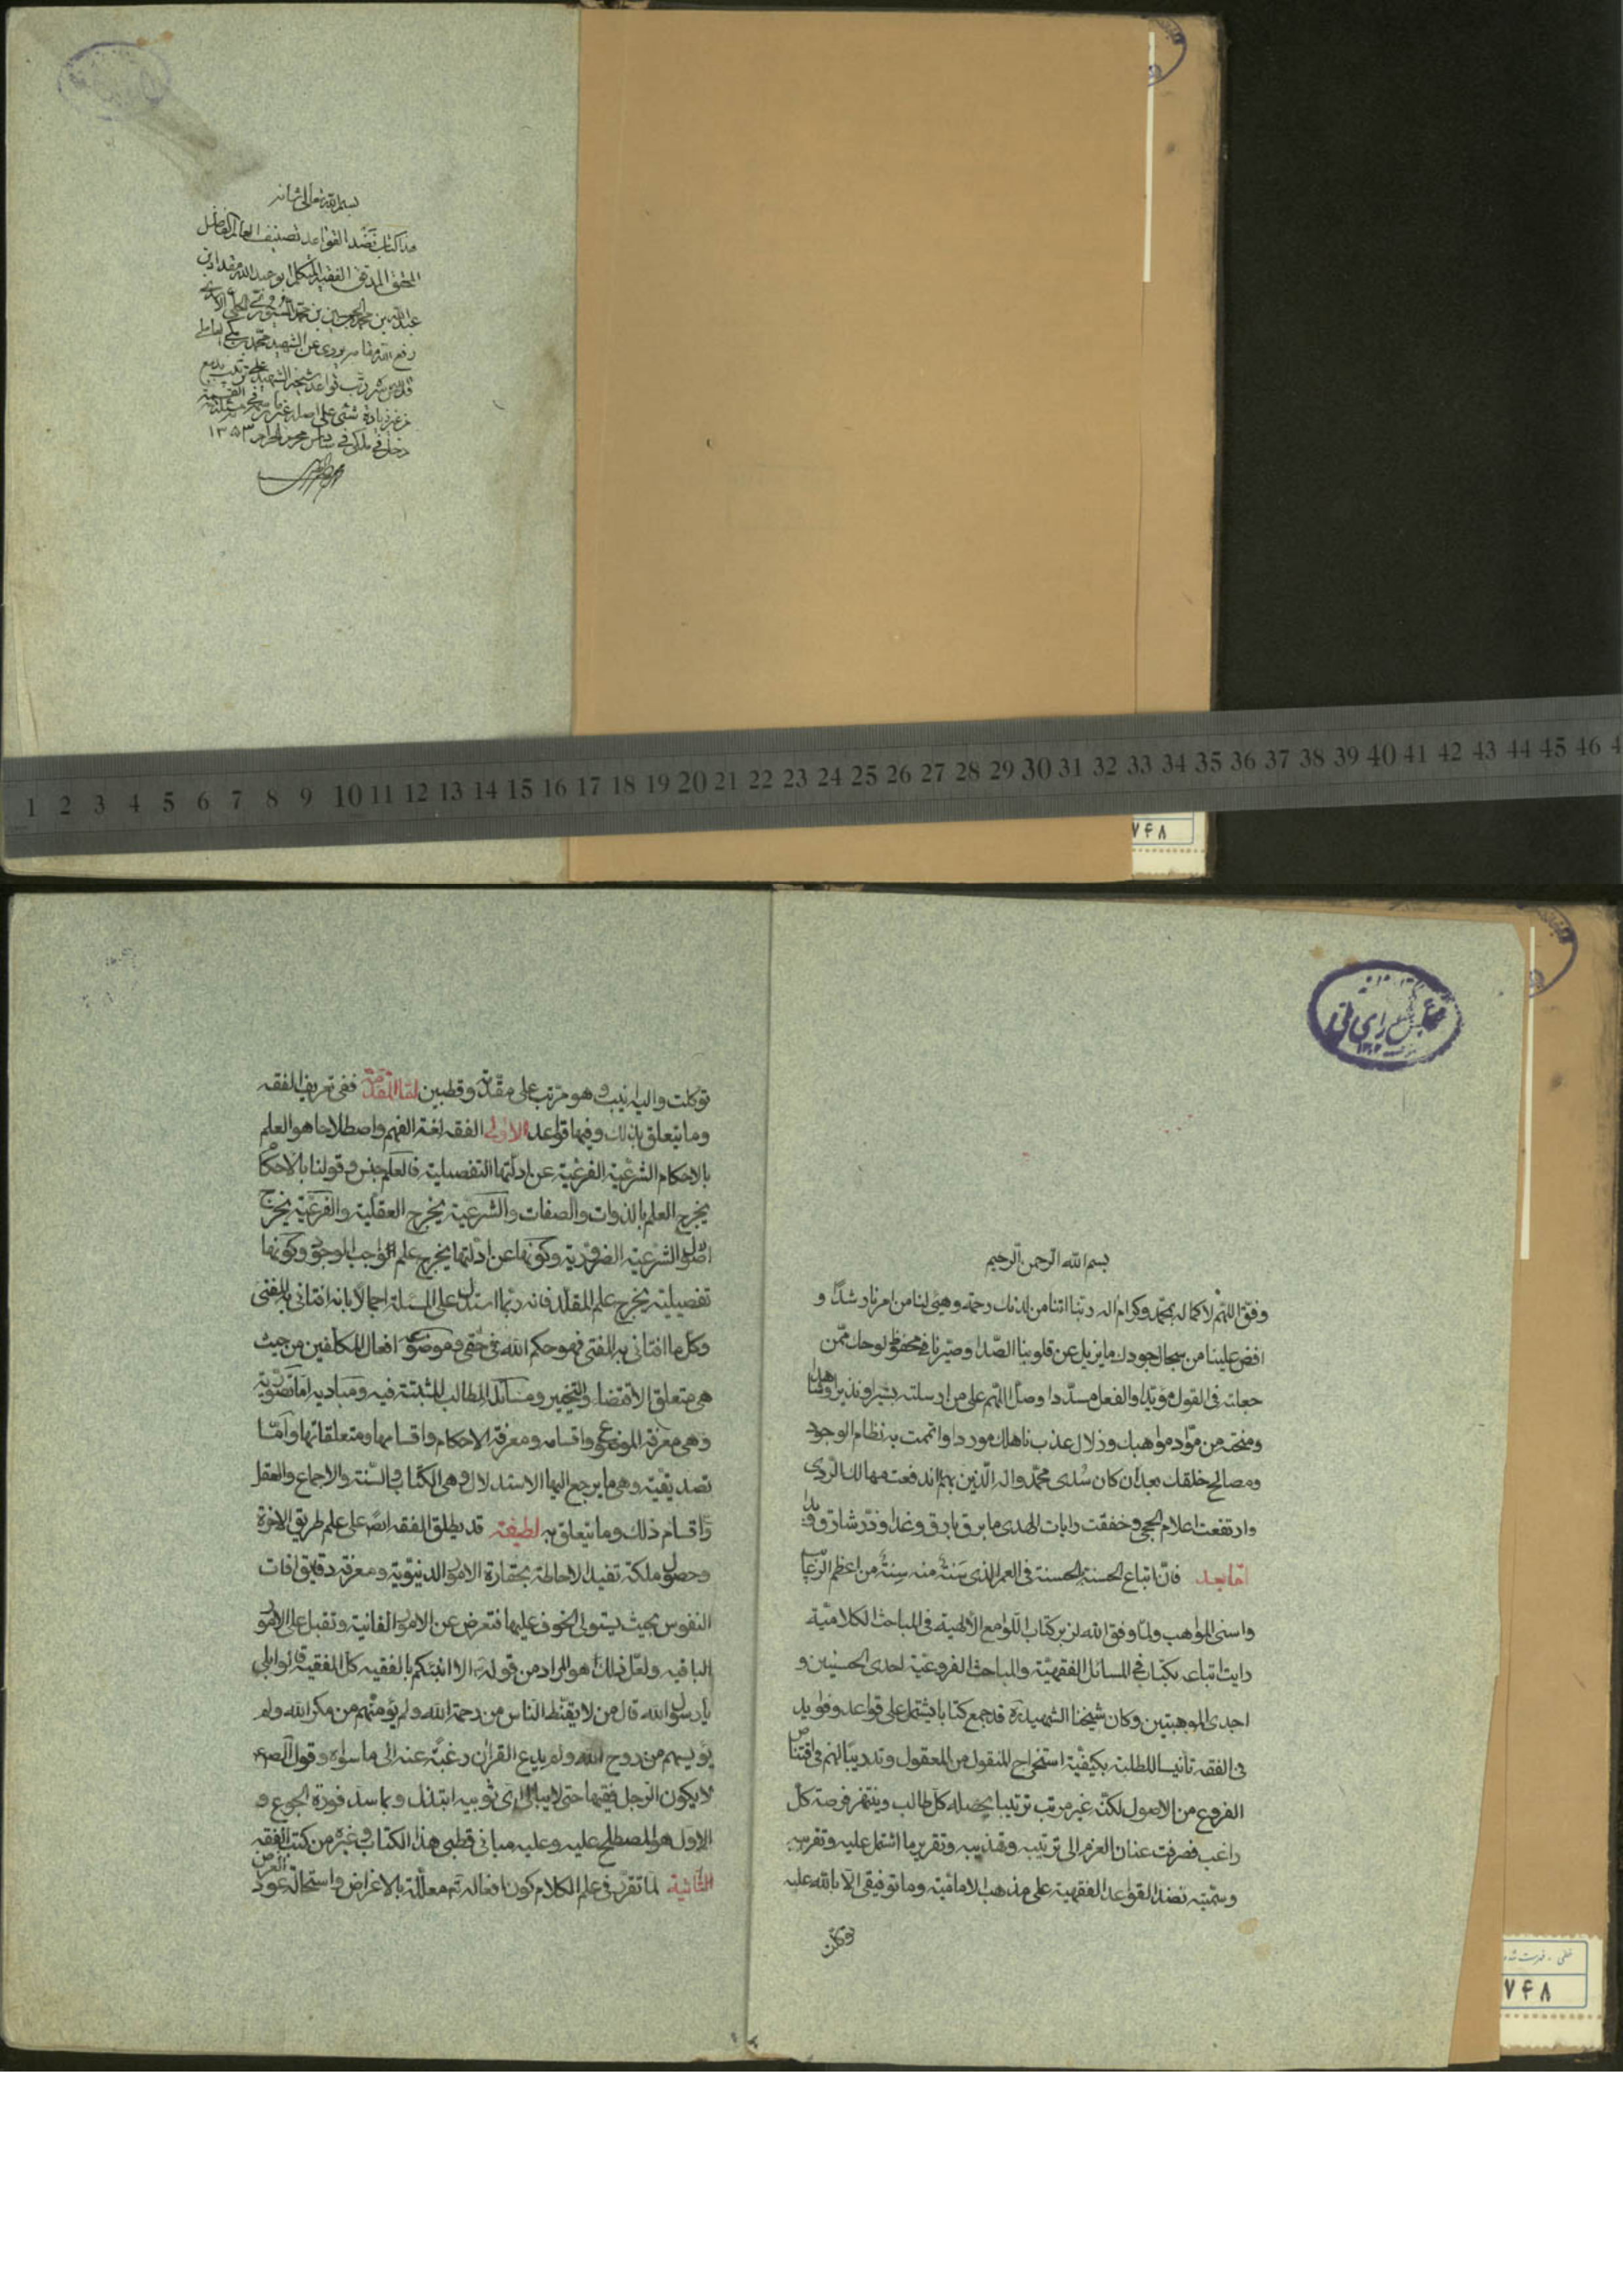 بسم الله تعالى شانه
هذا كتاب نضد القواعد تصنيف العالم الفاضل
المحقق المدقق الفقيه المتكلم ابو عبد الله مقداد بن
عبد الله بن محمد بن الحسين بن محمد السيوري الحلي الاسدي
رفع الله مقامه يروى عن الشهيد محمد بن مكي العاملي
قدس سره رتب قواعد شيخه الشهيد على ترتيب بديع
من غير زيادة شئ على اصله غير ما في القسمة
دخل في ملكي في سادس محرم الحرام ١٣٥٣
1 2 3 4 5 6 7 8 9 10 11 12 13 14 15 16 17 18 19 20 21 22 23 24 25 26 27 28 29 30 31 32 33 34 35 36 37 38 39 40 41 42 43 44 45 46 4
۷۴۸
بسم الله الرحمن الرحيم
وفق اللهم لاكماله بمحمد وكرام اله ربنا اتنا من لدنك رحمة وهيئ لنا من امرنا رشدا و
افض علينا من سجال جودك ما يزيل عن قلوبنا الصدا وصيرنا في محفوظ لوحك ممن
جعلته في القول مؤيدا والفعل مسددا وصل اللهم على من ارسلته بشيرا ونذيرا وشاهدا
ومنحته من مواد مواهبك وزلال عذب ناهلك موردا واتممت به نظام الوجود
ومصالح خلقك بعد ان كان سدى محمد واله الذين بهم اندفعت مهالك الردى
وارتفعت اعلام الحجى وخفقت رايات الهدى ما برق بارق وغدا وذر شارق و بدا
اما بعد فان اتباع الحسنة الحسنة في العمر الذي سنة منه سنة من اعظم الرغائب
واسنى المواهب ولما وفق الله لزبر كتاب اللوامع الالهية في المباحث الكلامية
رايت اتباعه بكتاب في المسائل الفقهية والمباحث الفروعية احدى الحسنيين و
احدى الموهبتين وكان شيخنا الشهيد ره قد جمع كتابا يشتمل على قواعد وفوايد
في الفقه تانيسا للطلبة بكيفية استخراج المنقول من المعقول وتدريبا لهم في اقتناص
الفروع من الاصول لكنه غير مرتب ترتيبا يحصله كل طالب وينتهز فرصة كل
راغب فصرفت عنان العزم الى ترتيبه وتهذيبه وتقرير ما اشتمل عليه وتقريبه
وسميته نضد القواعد الفقهية على مذهب الامامية وما توفيقي الا بالله عليه
توكلت
خطي - فهرست شده
۷۴۸
توكلت واليه انيب وهو مرتب على مقدمة وقطبين اما المقدمة ففي تعريف الفقه
وما يتعلق بذلك وفيها قواعد الاولى الفقه لغة الفهم واصطلاحا هو العلم
بالاحكام الشرعية الفرعية عن ادلتها التفصيلية فالعلم جنس وقولنا بالاحكام
يخرج العلم بالذوات والصفات والشرعية يخرج العقلية والفرعية يخرج
اصول الشرعية الضرورية وكونها عن ادلتها يخرج علم الواجب الوجود وكونها
تفصيلية يخرج علم المقلد فانه ربما استدل على المسئلة اجمالا بانه افتاني به المفتي
وكل ما افتاني به المفتي فهو حكم الله في حقي وموضوعه افعال المكلفين من حيث
هي متعلق الاقتضاء والتخيير ومسائله المطالب المثبتة فيه ومباديه اما تصورية
وهي معرفة الموضوع واقسامه ومعرفة الاحكام واقسامها ومتعلقاتها واما
تصديقية وهي ما يرجع اليها الاستدلال وهي الكتاب والسنة والاجماع والعقل
واقسام ذلك وما يتعلق به لطيفة قد يطلق الفقه ايضا على علم طريق الاخرة
وحصول ملكة تفيد الاحاطة بحقارة الامور الدنيوية ومعرفة دقايق افات
النفوس بحيث يستولى الخوف عليها فتعرض عن الامور الفانية وتقبل على الامور
الباقيه ولعل ذلك هو المراد من قوله ع الا انبئكم بالفقيه كل الفقيه قالوا بلى
يا رسول الله قال من لا يقنط الناس من رحمة الله ولم يؤمنهم من مكر الله ولم
يؤيسهم من روح الله ولم يدع القران رغبة عنه الى ما سواه وقول الص ع
لا يكون الرجل فقيها حتى لا يبالي اى ثوبيه ابتذل وبما سد فورة الجوع و
الاول هو المصطلح عليه وعليه مباني قطبي هذا الكتاب وغيره من كتب الفقه
الثانية لما تقرر في علم الكلام كون افعاله تع معللة بالاغراض واستحالة عود الغرض